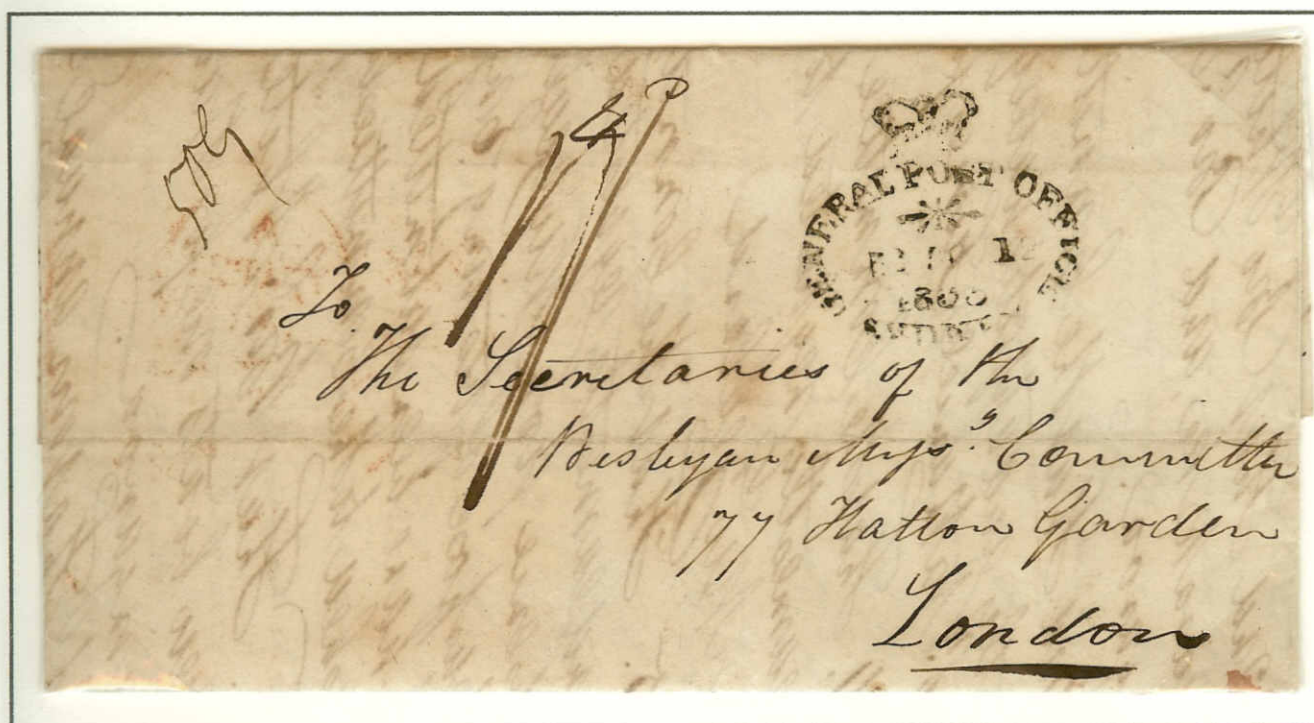 GENERAL POST OFFICE
SYDNEY
To
The Secretaries of the
Wesleyan Missy. Committee
77 Hatton Garden
London